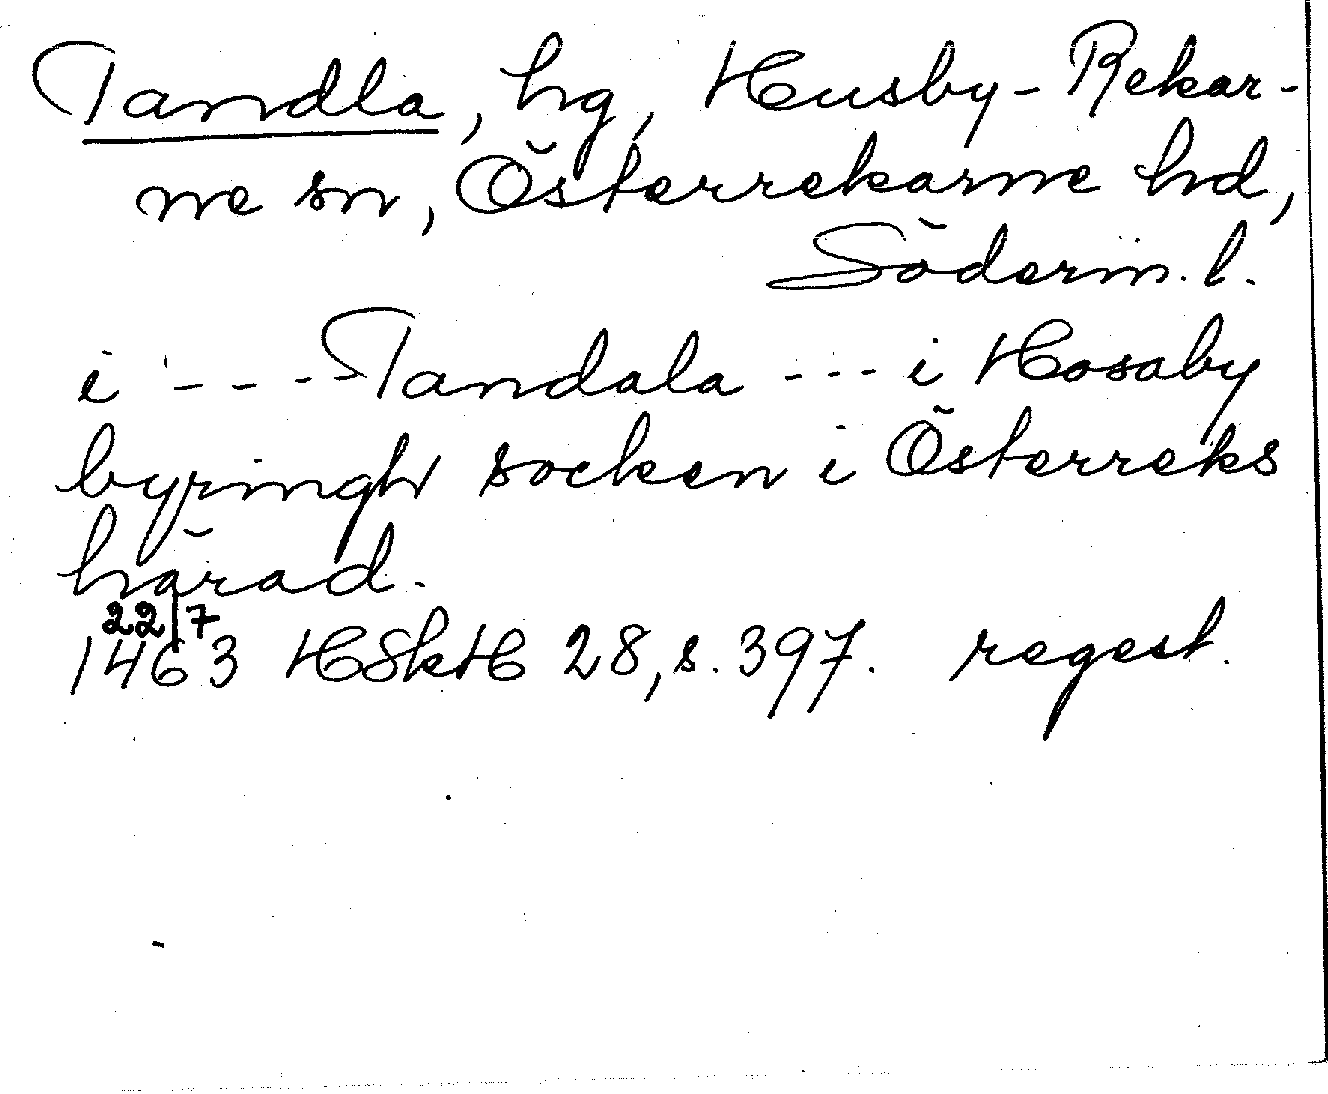 Tandla, hg, Husby-Rekar-
ne sn, Österrekarne hd,
Söderm. l.
i - - - - Tandala - - - i Hosaby
byringh socken i Österreks
härad.
22/7
1463 HSkH 28, s. 397. regest.